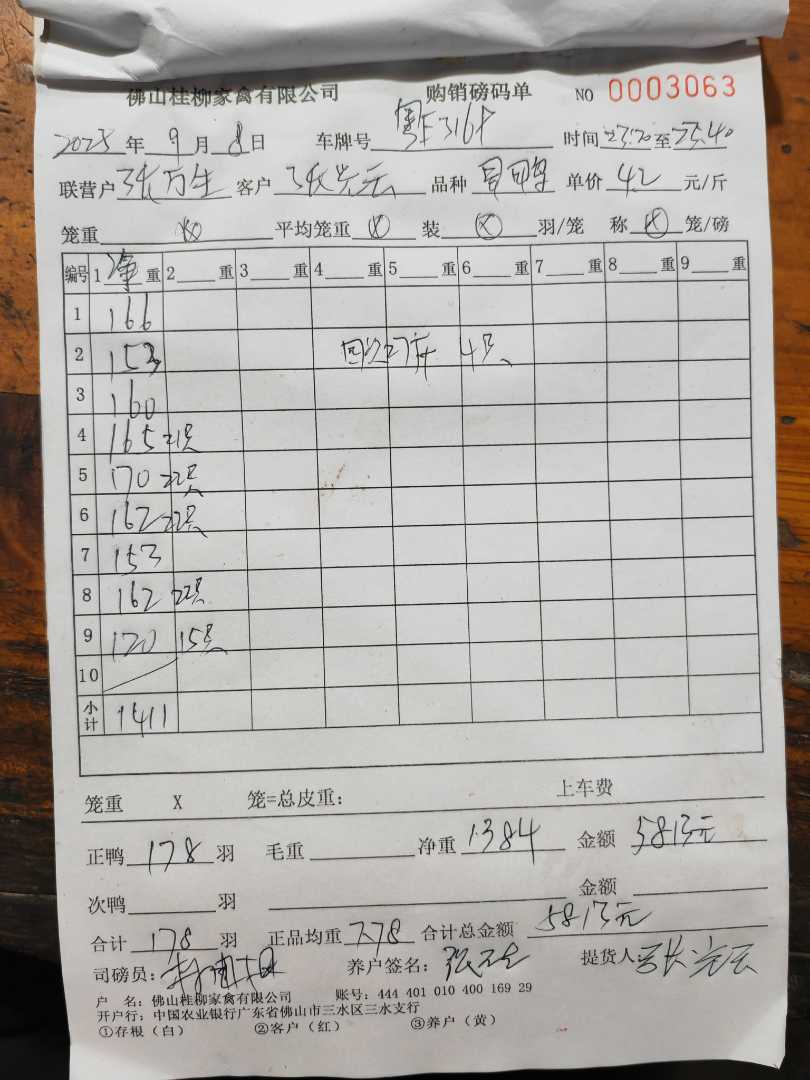 佛山桂柳家禽有限公司 购销磅码单 NO 0003063
2025年9月8日 车牌号 粤E316P 时间 23:20 至 23:40
联营户 张万生 客户 张 品种 单价 4.2 元/斤
笼重 平均笼重 装 羽/笼 称 笼/磅
编号 1 净 重 2 重 3 重 4 重 5 重 6 重 7 重 8 重 9 重
1 166
2 153 4只
3 160
4 165 21只
5 170 22只
6 162 22只
7 153
8 162 22只
9 120 15只
10
小计 1411
笼重 X 笼=总皮重: 上车费
正鸭 178 羽 毛重 净重 1384 金额 5813元
次鸭 羽 金额
合计 178 羽 正品均重 7.78 合计总金额 5813元
司磅员: 养户签名: 张万生 提货人 张
户 名: 佛山桂柳家禽有限公司 账号: 444 401 010 400 169 29
开户行: 中国农业银行广东省佛山市三水区三水支行
①存根(白) ②客户(红) ③养户(黄)